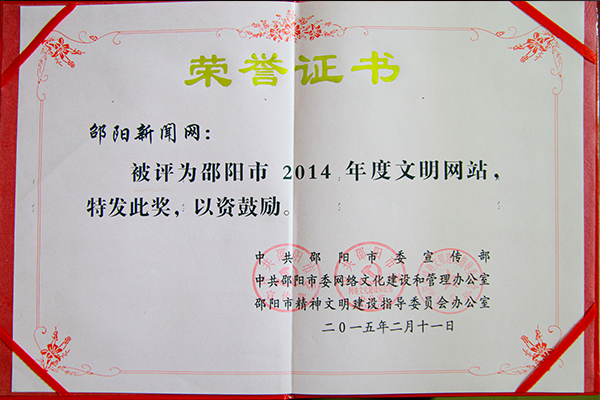 荣誉证书
邵阳新闻网：
被评为邵阳市 2014 年度文明网站，
特发此奖，以资鼓励。
中共邵阳市委宣传部
中共邵阳市委网络文化建设和管理办公室
邵阳市精神文明建设指导委员会办公室
二〇一五年二月十一日